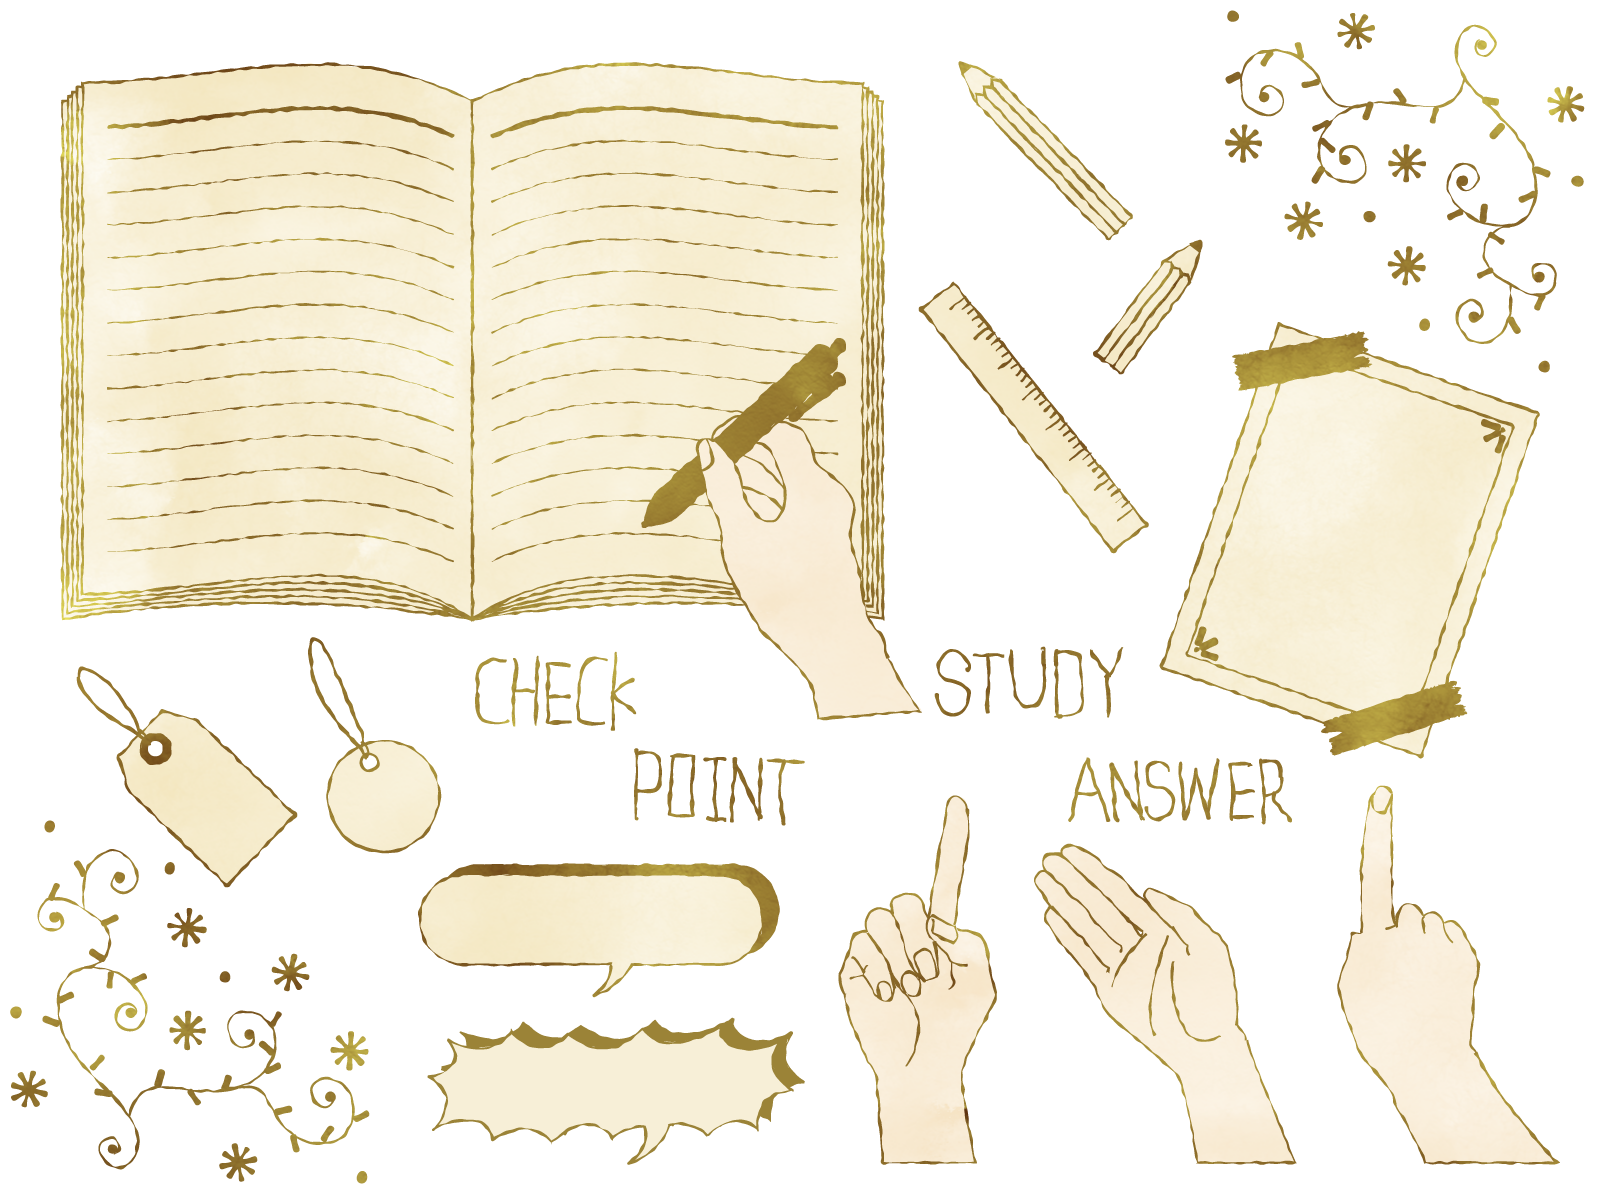 CHECK
STUDY
POINT
ANSWER